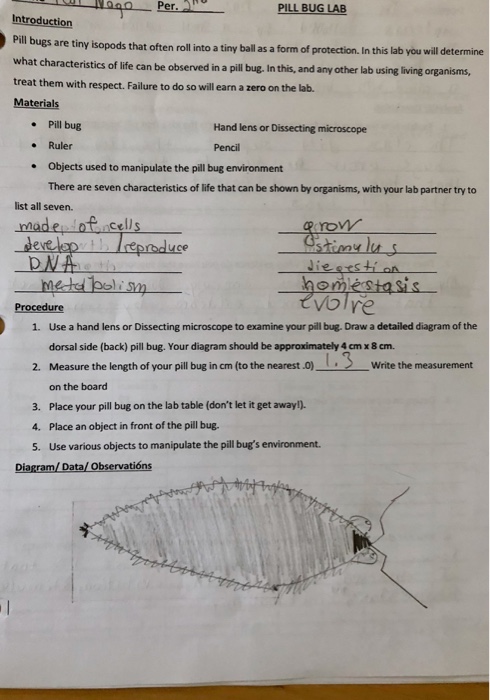 Nago Per. 2nd PILL BUG LAB
Introduction
Pill bugs are tiny isopods that often roll into a tiny ball as a form of protection. In this lab you will determine
what characteristics of life can be observed in a pill bug. In this, and any other lab using living organisms,
treat them with respect. Failure to do so will earn a zero on the lab.
Materials
• Pill bug Hand lens or Dissecting microscope
• Ruler Pencil
• Objects used to manipulate the pill bug environment
There are seven characteristics of life that can be shown by organisms, with your lab partner try to
list all seven.
made of cells grow
develop /reproduce stimulus
DNA diegestion
metabolism homestasis
evolve
Procedure
1. Use a hand lens or Dissecting microscope to examine your pill bug. Draw a detailed diagram of the
dorsal side (back) pill bug. Your diagram should be approximately 4 cm x 8 cm.
2. Measure the length of your pill bug in cm (to the nearest .0) 1.3 Write the measurement
on the board
3. Place your pill bug on the lab table (don't let it get away!).
4. Place an object in front of the pill bug.
5. Use various objects to manipulate the pill bug's environment.
Diagram/ Data/ Observations